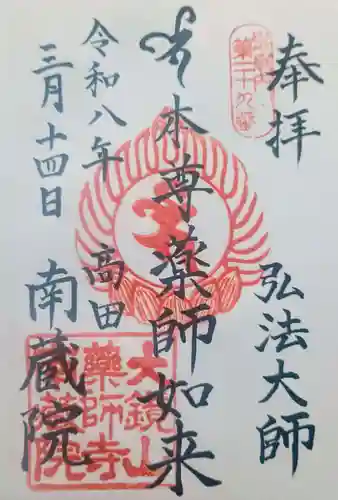 奉拝
弘法大師
本尊薬師如来
令和八年
三月十四日
高田
南蔵院
大鏡山
薬師寺
南蔵院